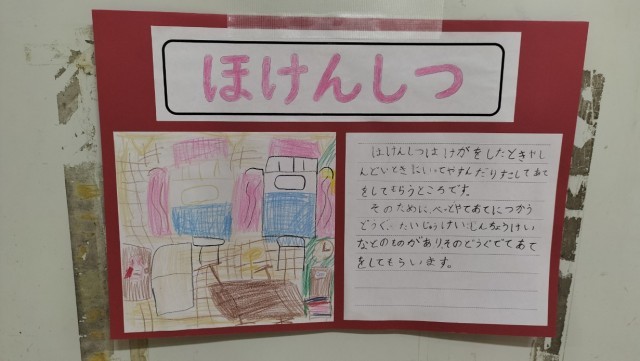 ほけんしつ
ほけんしつは けがをしたときやし
んどいときにいってやすんだりすこして あて
をしてもらうところです。
そのために、べっとやてあてにつかう
どうぐ、たいじゅうけい、しんちょうけい
などのものがありそのどうぐでてあて
をしてもらいます。